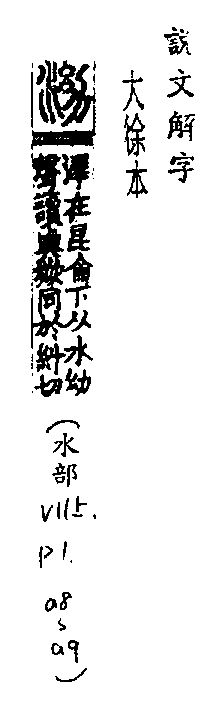 說文解字
大徐本
泑
澤在昆侖下从水幼
聲讀與同於糾切
(水部
V11上.
P1.
a8
~
a9)